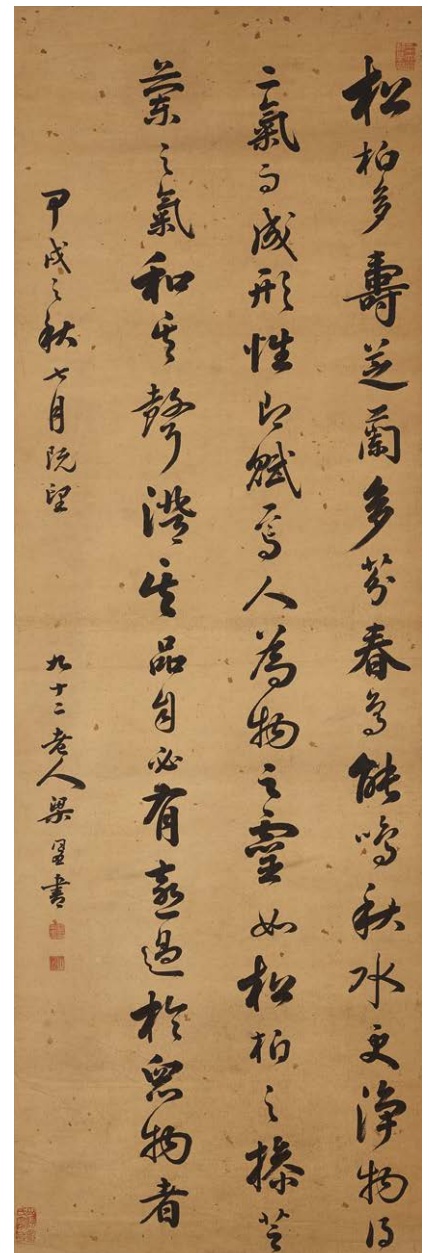 松柏多壽芝蘭多芬春鳥能鳴秋水更淨物得
二氣而成形性即賦焉人為物之靈如松柏之操芝
蘭之氣和其聲澄其品自必有超過於眾物者
甲戌之秋七月既望
九十二老人梁同書